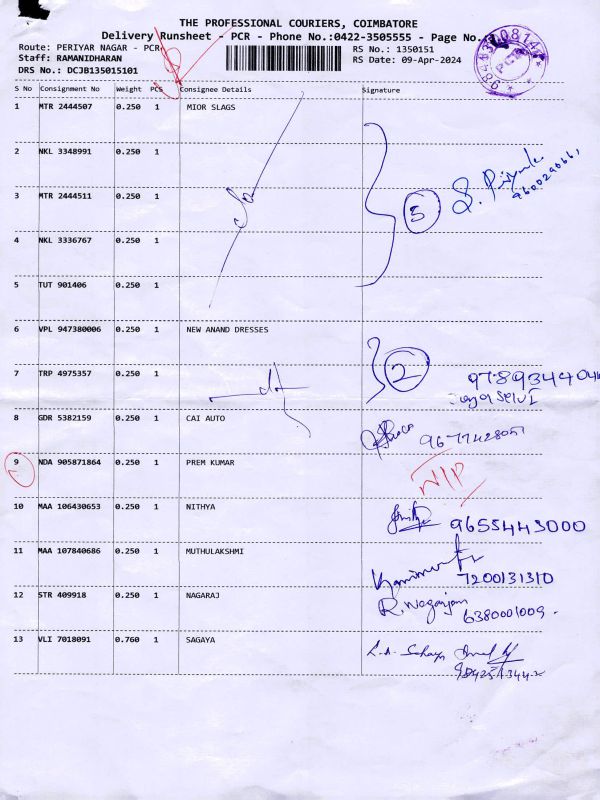 THE PROFESSIONAL COURIERS, COIMBATORE
Delivery Runsheet - PCR - Phone No.:0422-3505555 - Page No.
Route: PERIYAR NAGAR - PCR
RS No.: 1350151
Staff: RAMANIDHARAN
RS Date: 09-Apr-2024
DRS No.: DCJB135015101
PCR
S No Consignment No Weight PCS Consignee Details Signature
1 MTR 2444507 0.250 1 MIOR SLAGS
2 NKL 3348991 0.250 1
3 MTR 2444511 0.250 1
5 S. Priyanka
4 NKL 3336767 0.250 1
5 TUT 901406 0.250 1
6 VPL 947380006 0.250 1 NEW ANAND DRESSES
7 TRP 4975357 0.250 1
2 978934404
8 GDR 5382159 0.250 1 CAI AUTO
9 NDA 905871864 0.250 1 PREM KUMAR N/P
10 MAA 106430653 0.250 1 NITHYA 9655443000
11 MAA 107840686 0.250 1 MUTHULAKSHMI
7200131310
12 STR 409918 0.250 1 NAGARAJ R. Nagarajan
6380001009.
13 VLI 7018091 0.760 1 SAGAYA